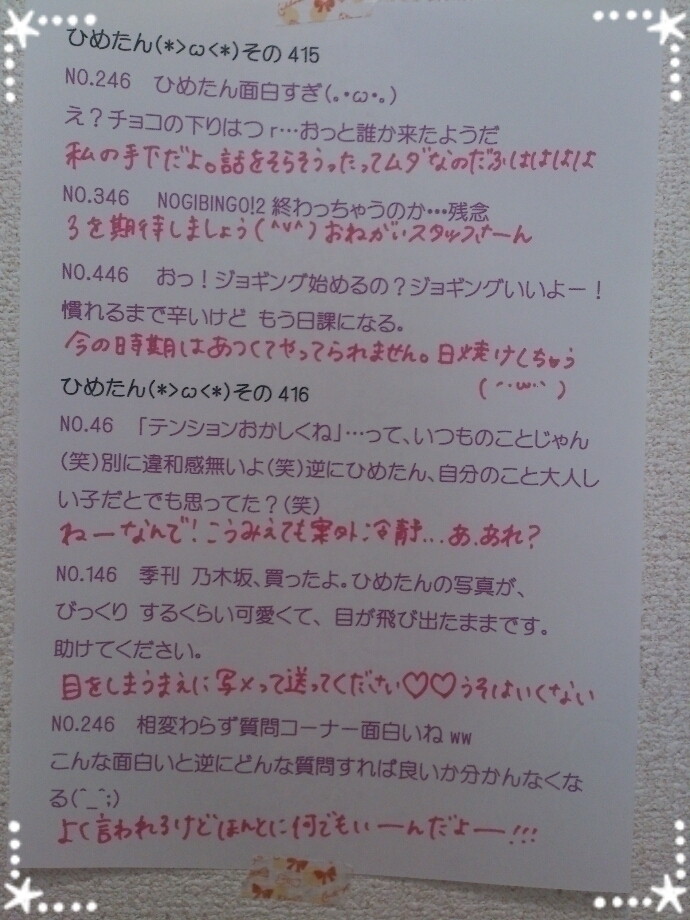 ひめたん(*>ω<*)その415
NO.246　ひめたん面白すぎ(｡･ω･｡)
え？チョコの下りはつr…おっと誰か来たようだ
私の手下だよ。話をそらそうったってムダなのだふはははは
NO.346　NOGIBINGO!2終わっちゃうのか…残念
3を期待しましょう(^v^)おねがいスタッフさーん
NO.446　おっ！ジョギング始めるの？ジョギングいいよー！
慣れるまで辛いけど もう日課になる。
今の時期はあつくてやってられません。日焼けしちゃう
(¨･ω･¨)
ひめたん(*>ω<*)その416
NO.46　「テンションおかしくね」…って、いつものことじゃん
(笑)別に違和感無いよ(笑)逆にひめたん、自分のこと大人し
い子だとでも思ってた？(笑)
ねーなんで！こうみえても案外冷静...あ、あれ？
NO.146　季刊 乃木坂、買ったよ。ひめたんの写真が、
びっくり するくらい可愛くて、目が飛び出たままです。
助けてください。
目をしまうまえに写メって送ってください♡♡うそはいくない
NO.246　相変わらず質問コーナー面白いねww
こんな面白いと逆にどんな質問すれば良いか分かんなくな
る(^_^;)
よく言われるけどほんとに何でもいーんだよー!!!